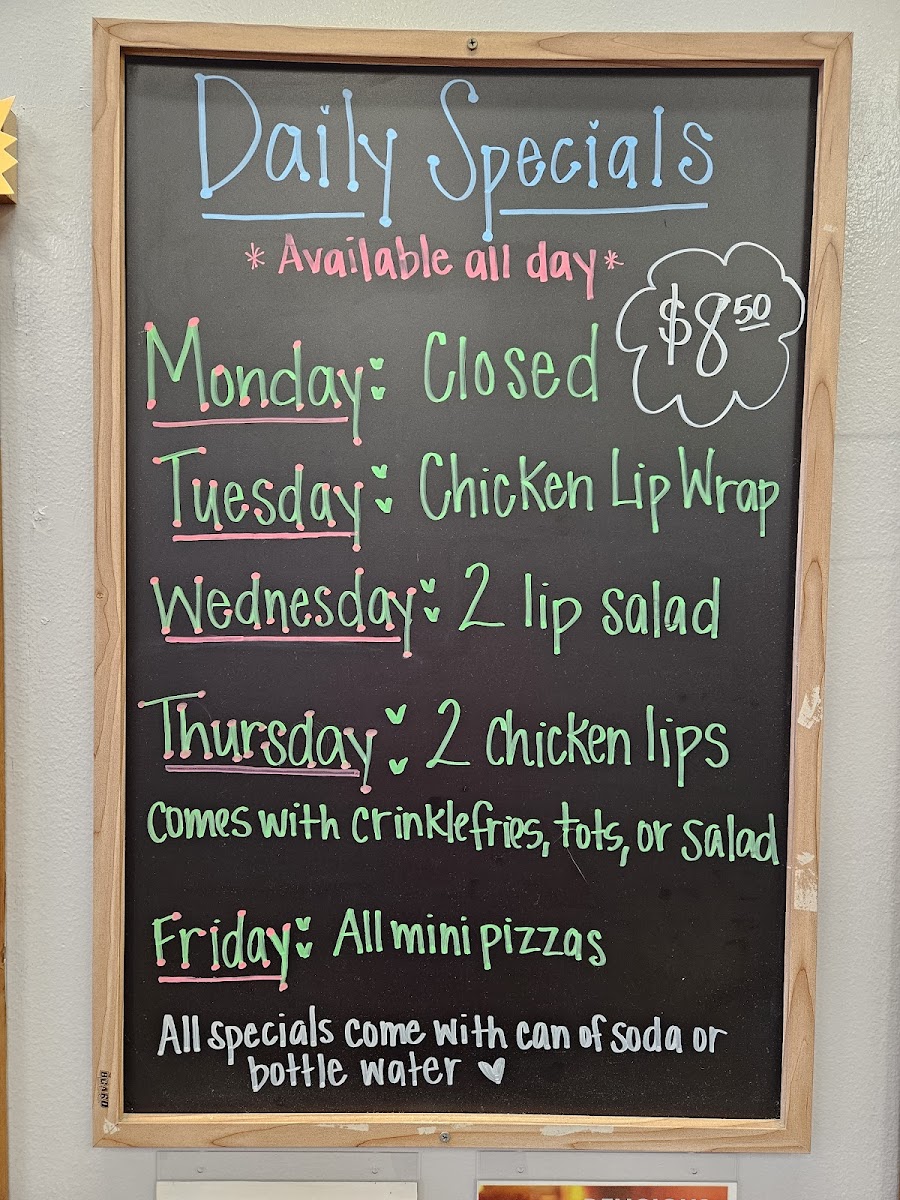 Daily Specials
* Available all day *
$8.50
Monday: Closed
Tuesday: Chicken Lip Wrap
Wednesday: 2 lip salad
Thursday: 2 chicken lips
comes with crinkle fries, tots, or salad
Friday: All mini pizzas
All specials come with can of soda or
bottle water ♥
BOARD